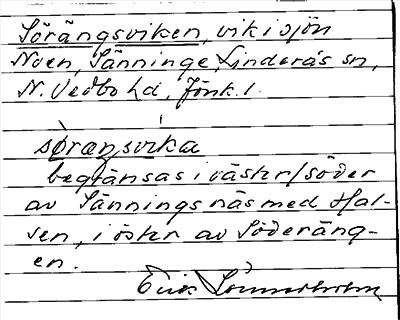 Sörängsviken, vik i sjön
Noen, Sänninge, Linderås sn,
N. Vedbo hd, Jönk. l.
søræŋsvika
begränsas i väster/söder
av Sänningsnäs med Hal-
sen, i öster av Söderäng-
en.
Erik